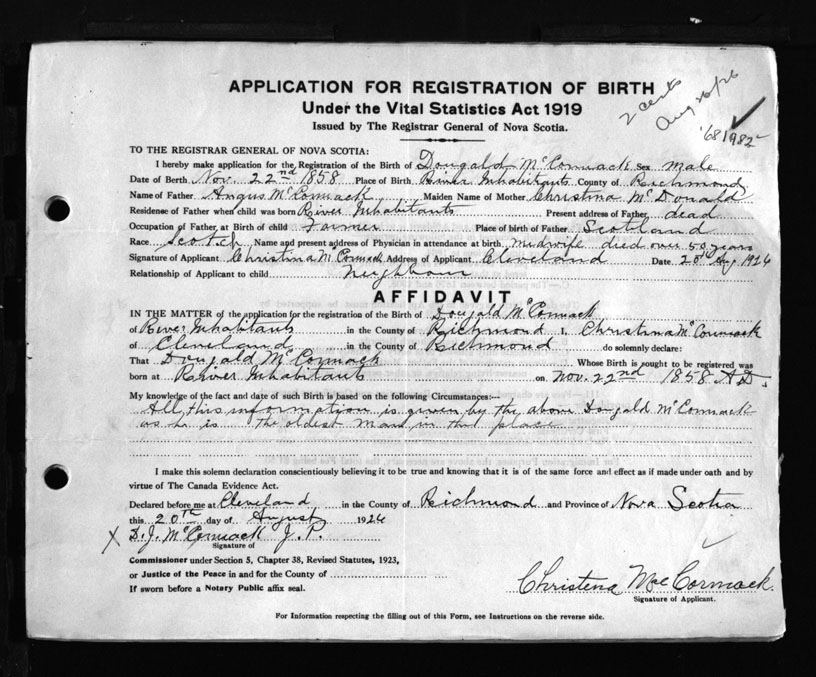 APPLICATION FOR REGISTRATION OF BIRTH
Under the Vital Statistics Act 1919
Issued by The Registrar General of Nova Scotia.
2 cents
Aug 26/26
'681982
TO THE REGISTRAR GENERAL OF NOVA SCOTIA:
I hereby make application for the Registration of the Birth of Dougald McCormack Sex male
Date of Birth Nov. 22nd 1858 Place of Birth River Inhabitants County of Richmond
Name of Father Angus McCormack Maiden Name of Mother Christina McDonald
Residence of Father when child was born River Inhabitants Present address of Father dead
Occupation of Father, at Birth of child Farmer Place of birth of Father Scotland
Race Scotch Name and present address of Physician in attendance at birth midwife died over 50 years
Signature of Applicant Christina McCormack Address of Applicant Cleveland Date 20th Aug 1926
Relationship of Applicant to child Neighbour
AFFIDAVIT
IN THE MATTER of the application for the registration of the Birth of Dougald McCormack
of River Inhabitants in the County of Richmond I, Christina McCormack
of Cleveland in the County of Richmond do solemnly declare:
That Dougald McCormack Whose Birth is sought to be registered was
born at River Inhabitants on Nov. 22nd 1858 A.D.
My knowledge of the fact and date of such Birth is based on the following Circumstances:—
All this information is given by the above Dougald McCormack
as he is the oldest man in that place
I make this solemn declaration conscientiously believing it to be true and knowing that it is of the same force and effect as if made under oath and by
virtue of The Canada Evidence Act.
Declared before me at Cleveland in the County of Richmond and Province of Nova Scotia
this 20th day of August 1926
X D.J. McCormack J.P.
Signature of
Commissioner under Section 5, Chapter 38, Revised Statutes, 1923,
or Justice of the Peace in and for the County of
If sworn before a Notary Public affix seal.
Christena MacCormack.
Signature of Applicant.
For Information respecting the filling out of this Form, see Instructions on the reverse side.